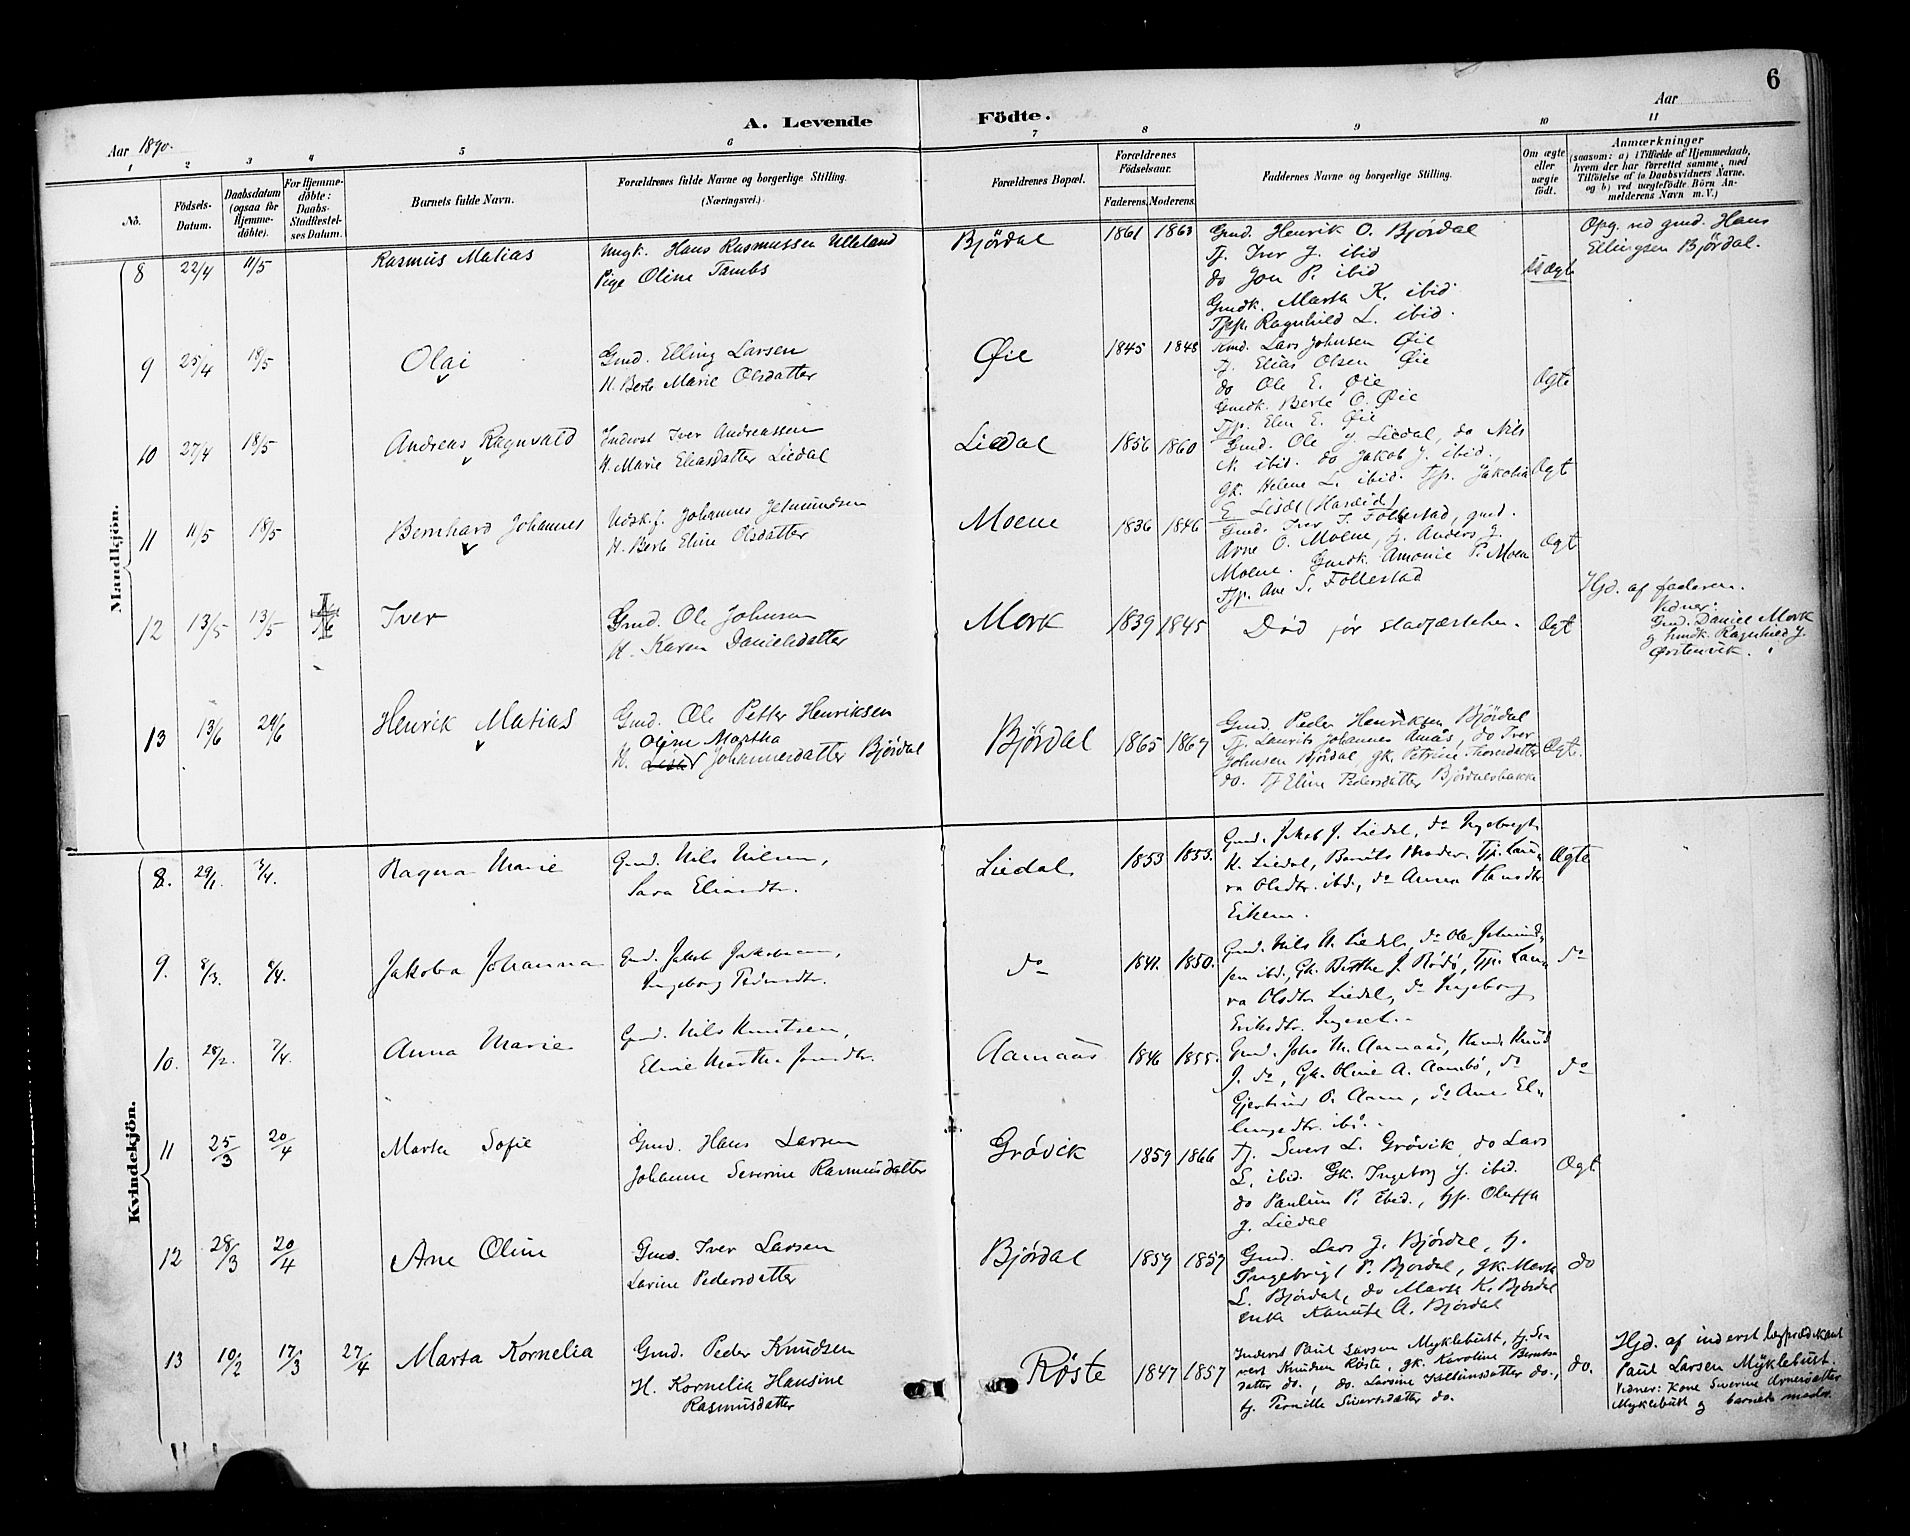 6
A. Levende Födte.
Aar 1890.
Aar
1 2 3 4 5 6 7 8 9 10 11
Nô.
Födsels-
Datum.
Daabsdatum
(ogsaa for
Hjemme-
döbte).
For Hjemme-
döbte:
Daabs-
Stadfæstel-
ses Datum.
Barnets fulde Navn.
Forældrenes fulde Navne og borgerlige Stilling.
(Næringsvei.)
Forældrenes Bopæl.
Forældrenes
Födselsaar.
Faderens. Moderens.
Faddernes Navne og borgerlige Stilling.
Om ægte
eller
uægte
födt.
Anmærkninger
(saasom: a) i Tilfælde af Hjemmedaab,
hvem der har forrettet samme, med
Tilföielse af to Daabsvidners Navne,
og b) ved uægtefödte Börn An-
melderens Navn m. V.)
Mandkjön.
8 22/4 11/5 Rasmus Matias
Ungk. Hans Rasmussen Ulleland
Pige Oline Tambs
Bjørdal 1861 1863
Gmd. Henrik O. Bjørdal
Tj. Iver J. ibid
do Jon P. ibid
Gmdk. Marta K. ibid.
Tjp. Ragnhild L. ibid.
Uægte
Opg. ved gmd. Hans
Ellingsen Bjørdal.
9 25/4 18/5 Olai
Gmd. Elling Larsen
H. Berte Marie Olsdatter
Øie 1845 1848
Kmd. Lars Johnsen Øie
Tj. Elias Olsen Øie
do Ole E. Øie
Gmdk. Berte O. Øie
Tjp. Elen E. Øie
Ægte
10 27/4 18/5 Andreas Ragnvald
Inderst Iver Andreassen
H. Marie Eliasdatter Liedal
Liedal 1856 1860
Gmd. Ole J. Liedal, do Nils
N. ibid. do Jakob J. ibid.,
Gk. Helene L. ibid. Tjp. Jakobia
E. (Hareid)
Ægt
11 11/5 18/5 Bernhard Johannes
Udsk.f. Johannes Jetmundsen
H. Berte Eline Olsdatter
Moene 1836 1846
Gmd. Iver I. Follestad, gmd.
Arne O. Moene, tj. Anders J.
Moene. Gmdk. Amonie P. Moen
Tjp. Ane S. Follestad
Ægt
12 13/5 13/5 Iver
Gmd. Ole Johnsen
H. Karen Danielsdatter
Mork 1839 1845
Død før stadfæstelsen.
Ægt
Hjd. af faderen.
Vidner:
Gmd. Daniel Mork
g Ragnhild J.
Ørstenvik.
13 13/6 29/6 Henrik Matias
Gmd. Ole Petter Henriksen
Oline Martha
H. Johannesdatter Bjørdal
Bjørdal 1865 1867
Gmd. Peder Henriksen Bjørdal
Tj. Laurits Johannes Amås, do Iver
Johnsen Bjørdal, gk. Petrine
do. Tj Eline Pedersdatter Bjørdalsbakke
Ægte.
Kvindekjön.
8. 29/1. 7/4. Ragna Marie
Gmd. Nils Nilsen,
Sara Eliasdtr.
Liedal. 1853 1853.
Gmd. Jakob J. Liedal, do Ingeborg
K. Liedal, Barnets Moder. Tjp. Lau-
ra Olsdtr. ibd., do Anna Hansdtr
Eikem.
Ægte
9. 8/3. 7/4. Jakoba Johanna
Gmd. Jakob Jakobsen,
Ingeborg Pedersdtr.
do 1841. 1850.
Gmd. Nils N. Liedal, do Ole Jetmund-
sen ibd., Gk. Berthe J. Rødø, Tjp. Lau-
ra Olsdtr Liedal, do Ingeborg
Eriksdtr.
do
10. 28/2. 7/4. Anna Marie
Gmd. Nils Knutsen,
Eline Martha
Aamaas 1846 1855.
Gmd. Johs M. Aamaas, Knud
J. do, Gk. Oline A. Aambø, do
Gjertine P. Aam, do Ane El-
lingsdtr. ibd.
do
11 25/3 20/4 Marta Sofie
Gmd. Hans Larsen
Johanne Severine Rasmusdatter
Grøvik 1859 1866
Tj. Sivert L. Grøvik, do Lars
L. ibid. Gk. Ingeborg J. ibid.
do Pauline P. ibid., tjp. Oluffa
J. Liedal
Ægt
12 28/3 20/4 Ane Oline
Gmd. Iver Larsen
Larine Pedersdatter
Bjørdal 1859 1859
Gmd. Lars J. Bjørdal, tj.
Ingebrigt P. Bjørdal, gk. Marta
L. Bjørdal, do Marta K. Bjørdal
enke A. Bjørdal
do
13 10/2 17/3 27/4 Marta Kornelia
Gmd. Peder Knudsen
H. Kornelia Hansine
Rasmusdatter
Røste 1847 1857
Inderst Paul Larsen Myklebust, tj. Si-
vert Knudsen Røste, gk. Karoline Bernts-
datter do., do. Larsine do.,
tj. Pernille Sivertsdatter do.
do.
Hjd. af inderst lægprædikant
Paul Larsen Myklebust.
Vidner: Kone Severine Arnesdatter
Myklebust og barnets moder.